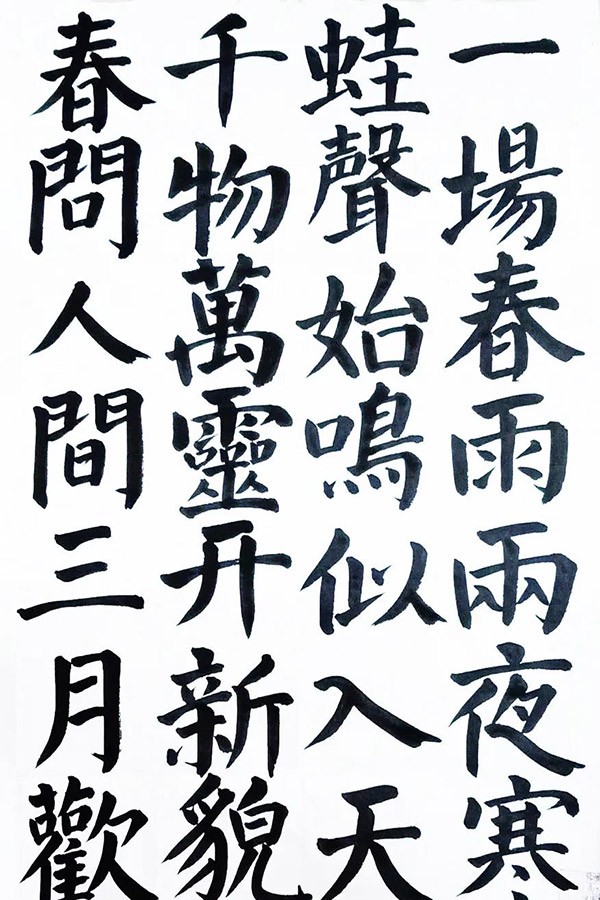 一場春雨兩夜寒
蛙聲始鳴似入天
千物萬靈开新貌
春問人間三月歡